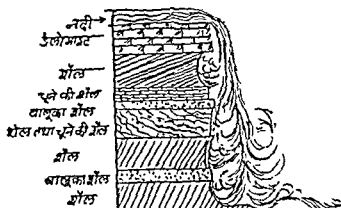 नदी
डैलोमाइट
शैल
चूने की शैल
बालूका शैल
शैल तथा चूने की शैल
शैल
बालूका शैल
शैल